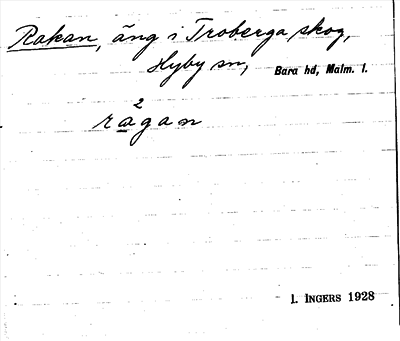 Rakan, äng i Troberga skog,
Hyby sn, Bara hd, Malm. l.
2
rågan
I. INGERS 1928